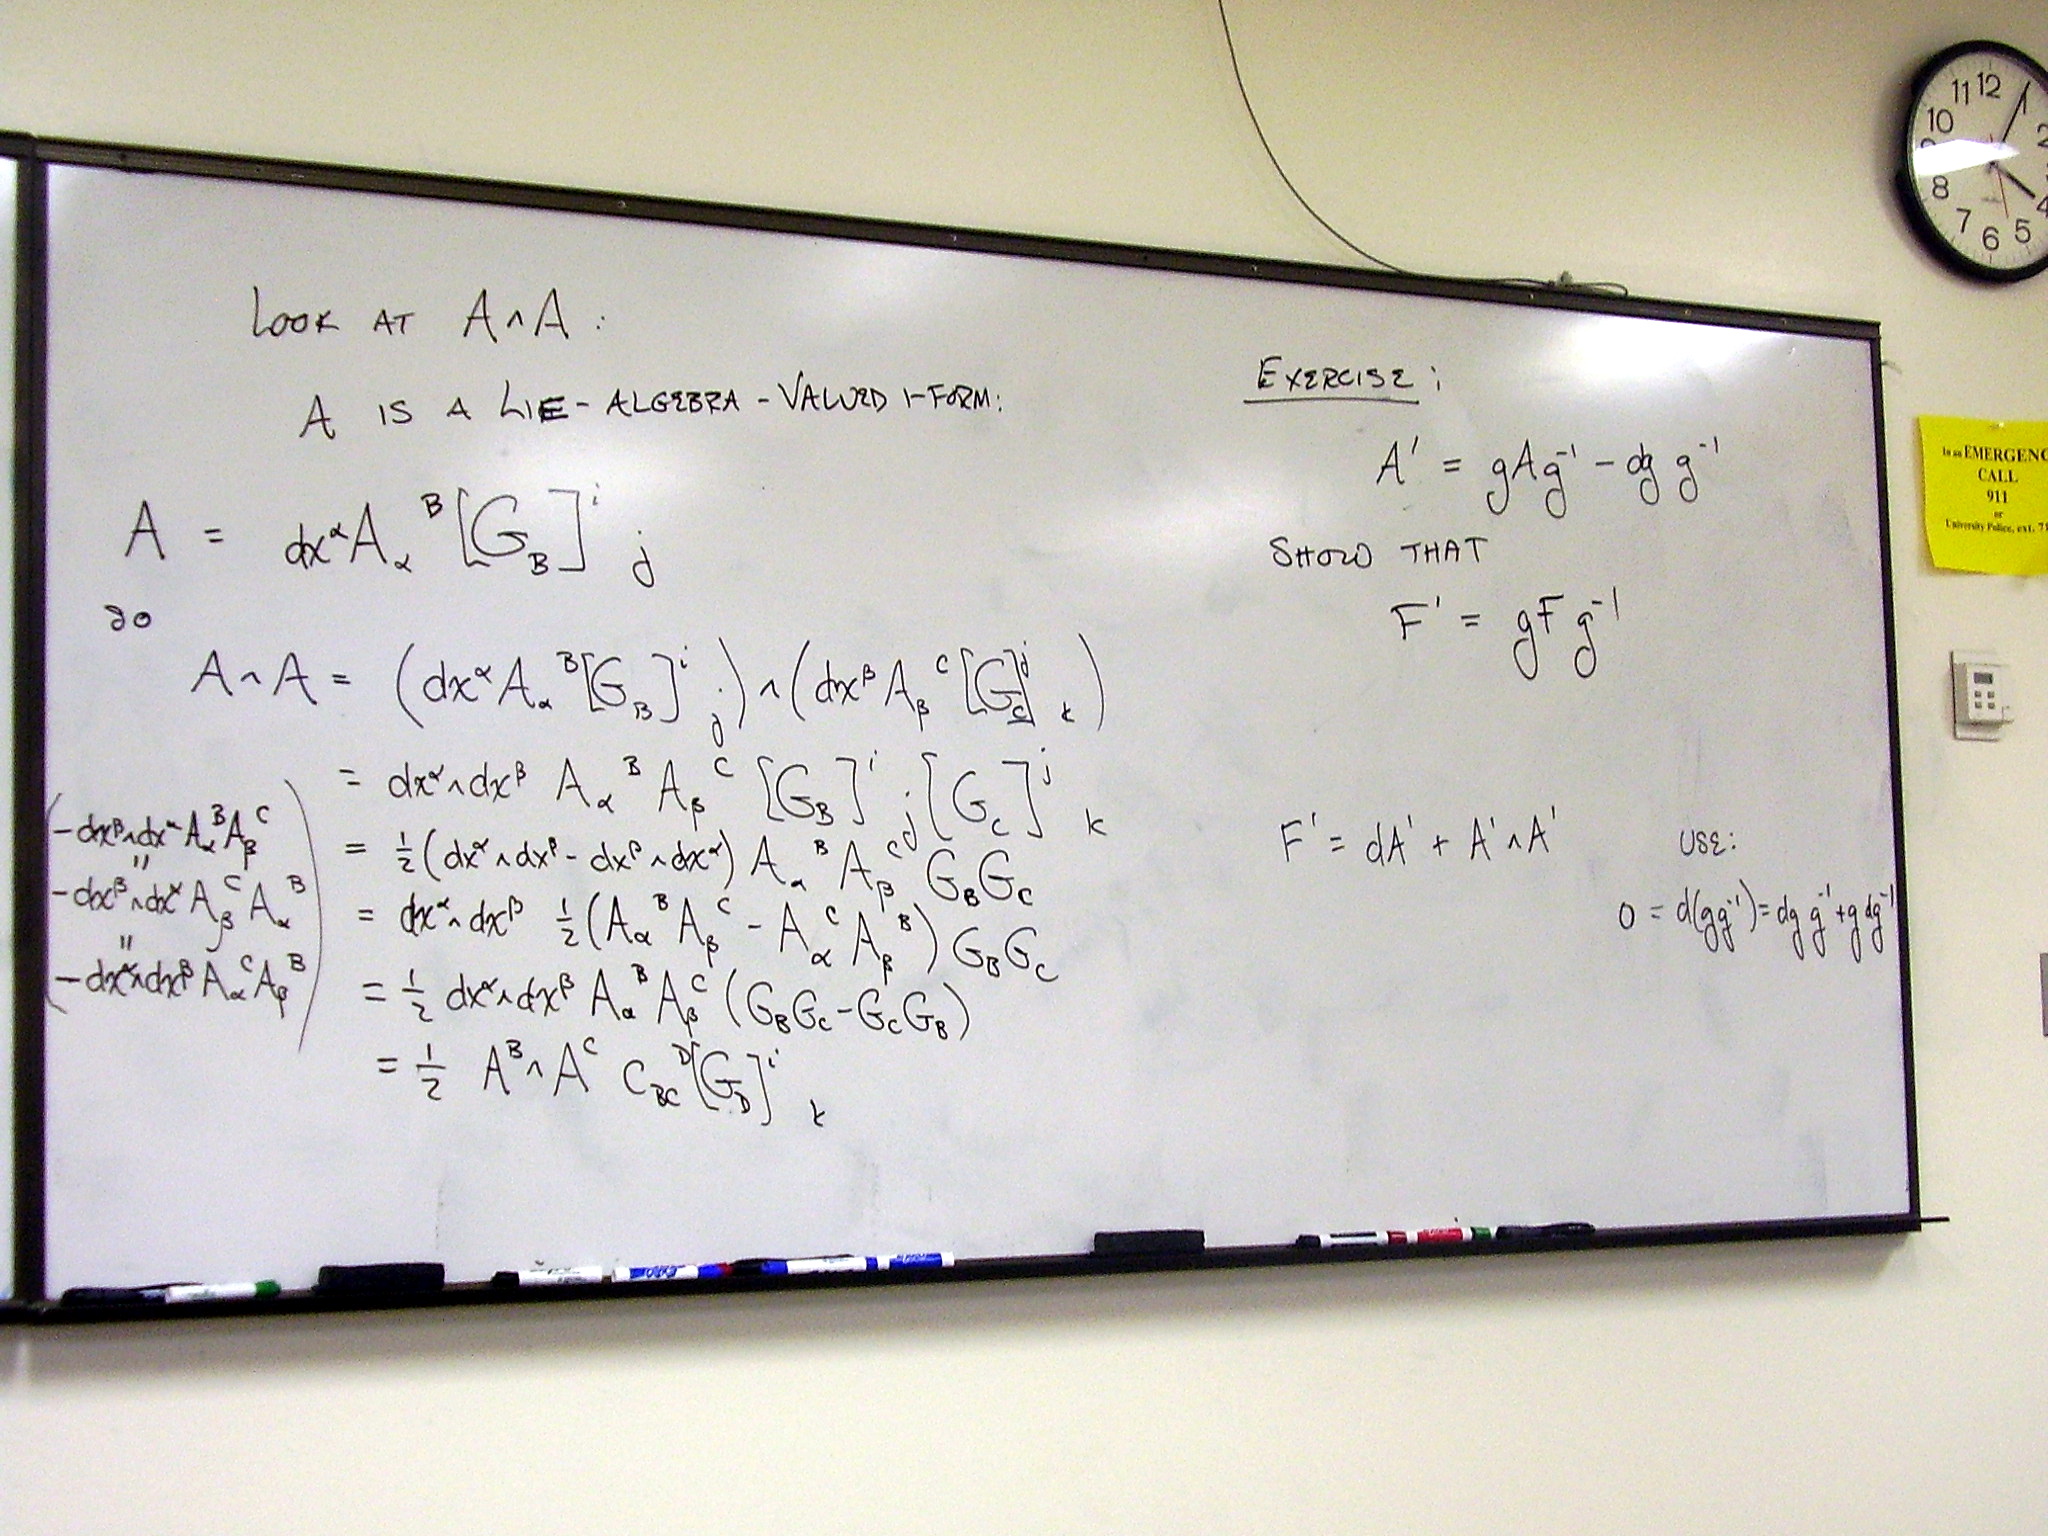 LOOK AT A∧A:
A IS A LIE-ALGEBRA-VALUED 1-FORM:
A = dx^α A_α^B [G_B]^i_j
so
A∧A = (dx^α A_α^B [G_B]^i_j) ∧ (dx^β A_β^C [G_C]^j_k)
= dx^α∧dx^β A_α^B A_β^C [G_B]^i_j [G_C]^j_k
= 1/2 (dx^α∧dx^β - dx^β∧dx^α) A_α^B A_β^C G_B G_C
= dx^α∧dx^β 1/2 (A_α^B A_β^C - A_α^C A_β^B) G_B G_C
= 1/2 dx^α∧dx^β A_α^B A_β^C (G_B G_C - G_C G_B)
= 1/2 A^B∧A^C C_BC^D [G_D]^i_k
(-dx^β∧dx^α A_α^B A_β^C
"
-dx^β∧dx^α A_β^C A_α^B
"
-dx^α∧dx^β A_α^C A_β^B)
EXERCISE:
A' = gAg^-1 - dg g^-1
SHOW THAT
F' = gFg^-1
F' = dA' + A'∧A'
USE:
0 = d(gg^-1) = dg g^-1 + g dg^-1
11 12 1
10 2
8 4
7 6 5
In an EMERGENC
CALL
911
or
University Police, ext. 71